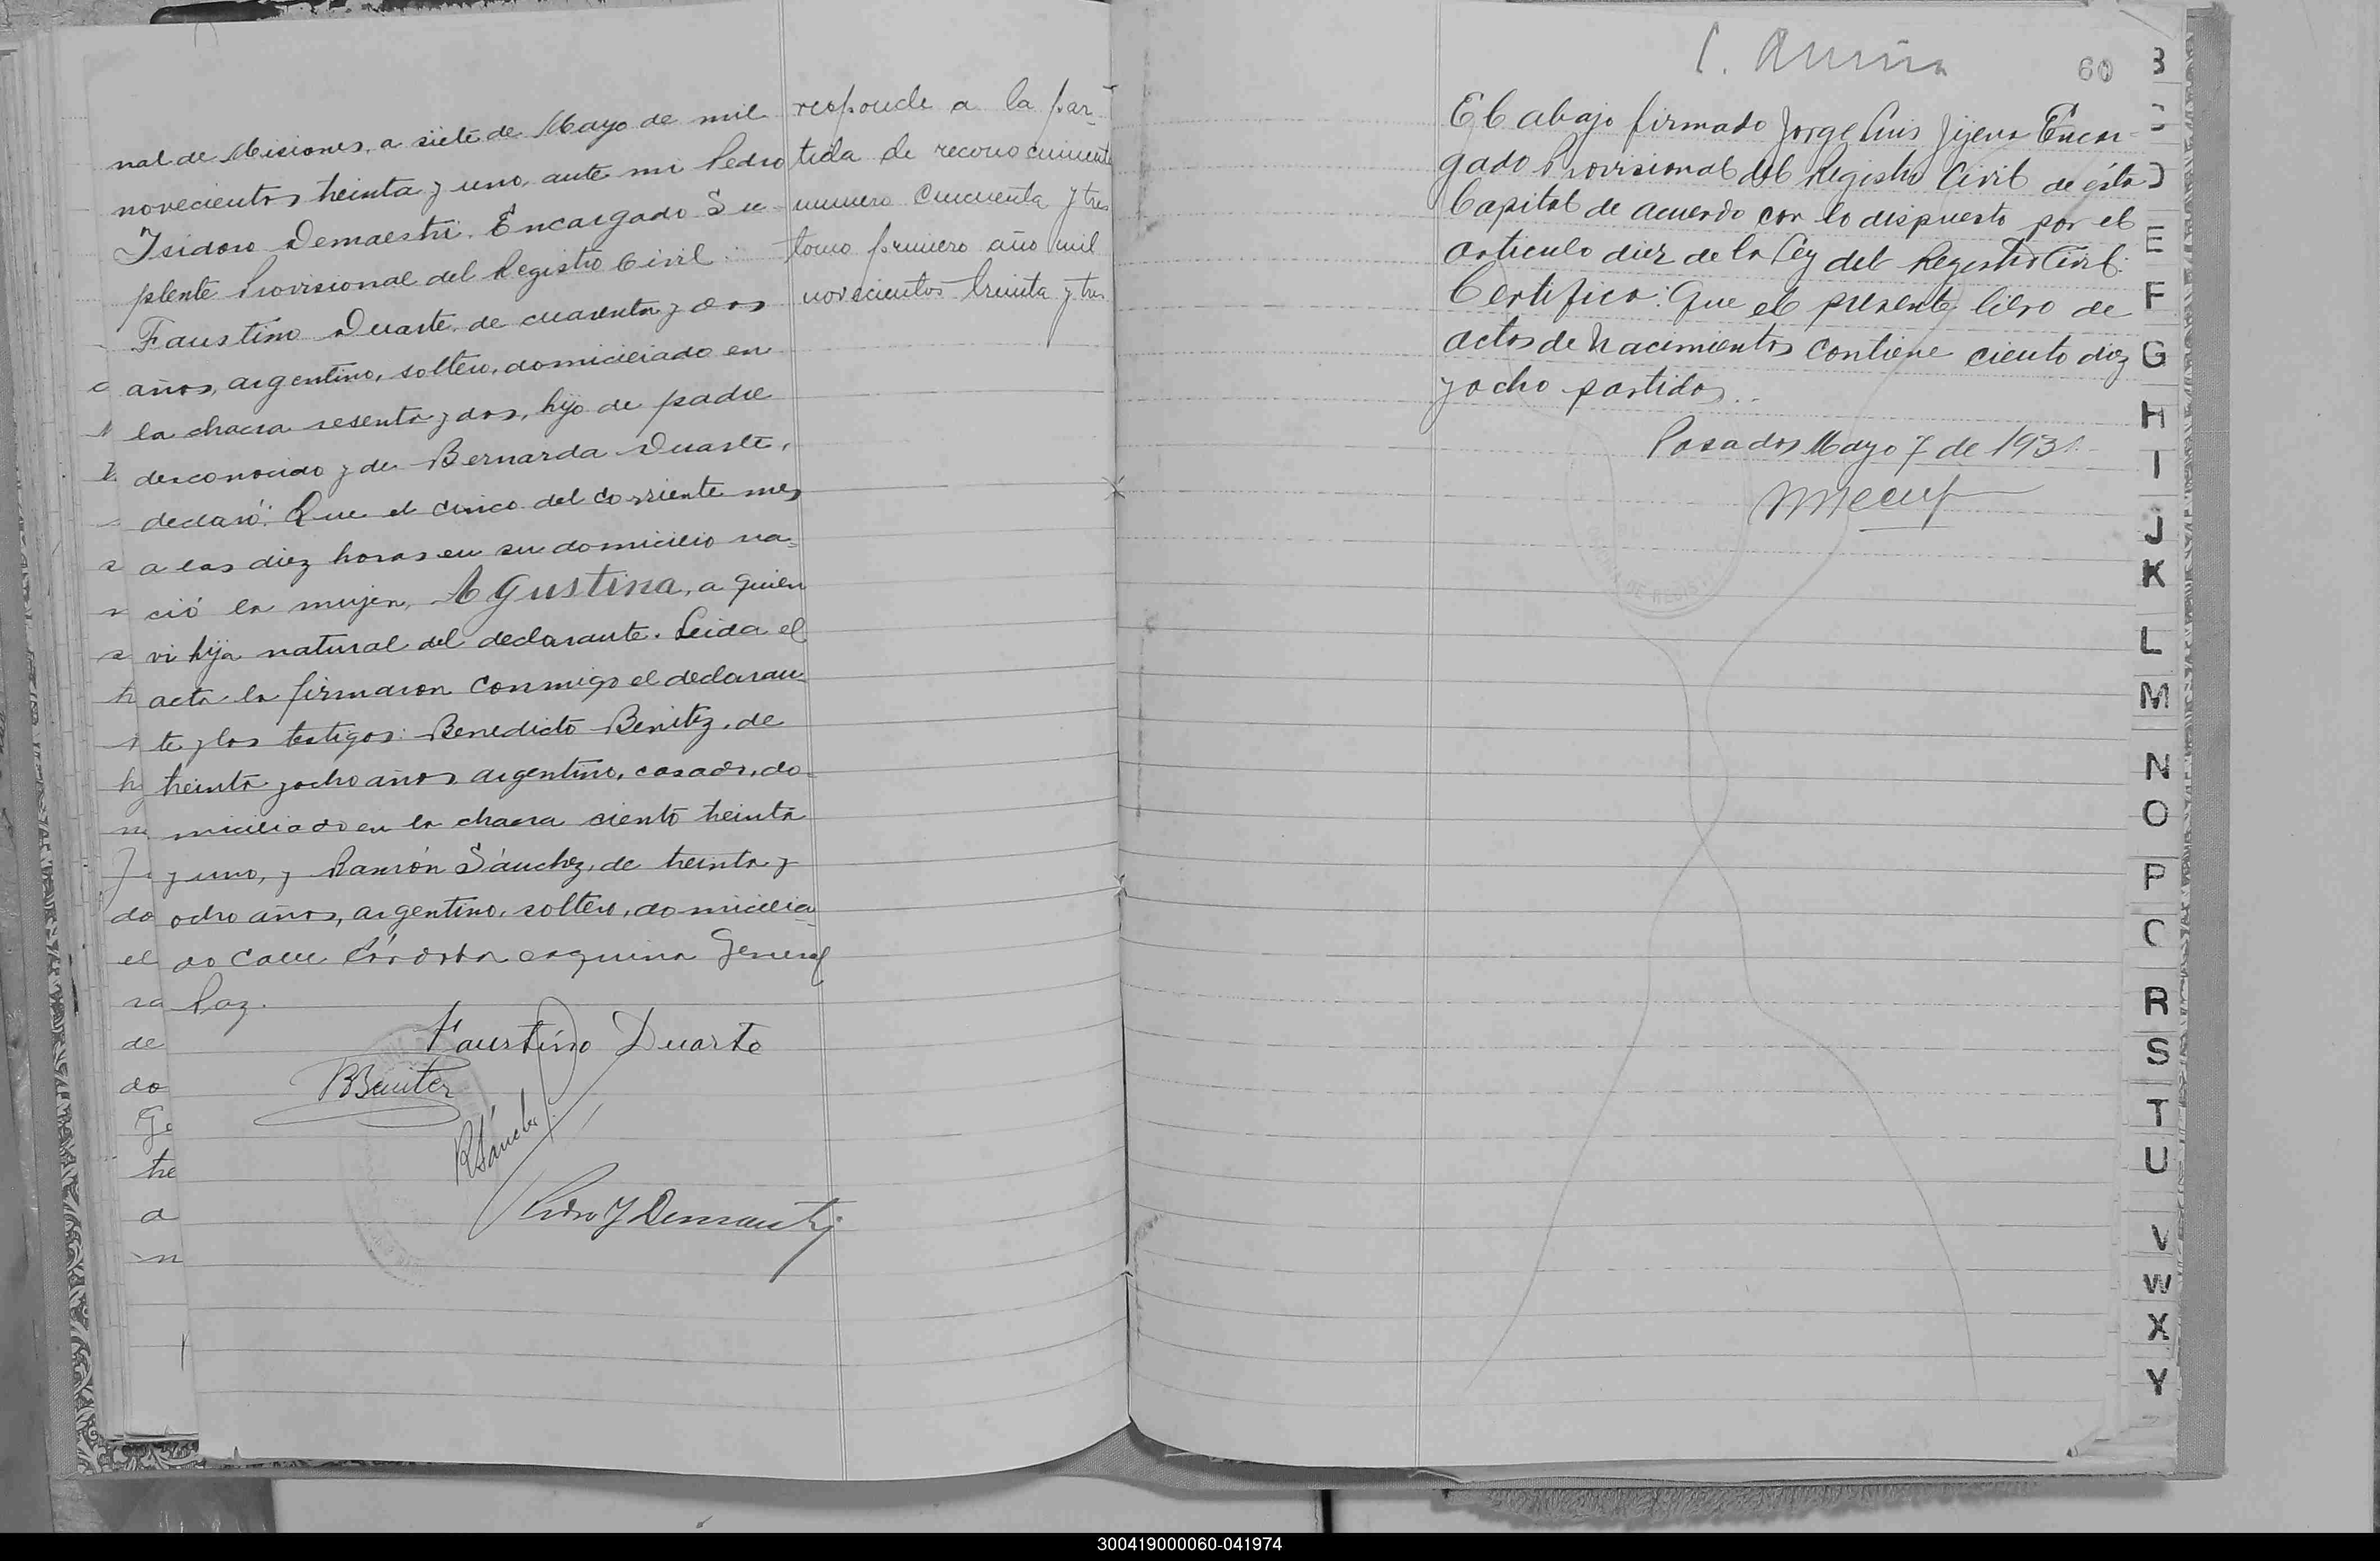 nal de Misiones, a siete de Mayo de mil
novecientos treinta y uno, ante mi Pedro
Isidoro Demaestri. Encargado Su
plente Provisional del Registro Civil.
Faustino Duarte, de cuarenta y dos
años, argentino, soltero, domiciliado en
la chacra sesenta y dos, hijo de padre
desconocido y de Bernarda Duarte,
declaró: Que el cinco del corriente mes
a las diez horas en su domicilio na-
ció la mujer, Agustina, a quien
vi hija natural del declarante. Leida el
acta la firmaron conmigo el declaran
te y los testigos: Benedicto Benitez, de
treinta y ocho años, argentino, casado, do-
miciliado en la chacra siento treinta
y uno, y Ramón Sánchez, de treinta y
ocho años, argentino, soltero, domicilia-
do calle Córdoba esquina General
Paz.
Faustino Duarte
BBenitez
RSánchez
Pedro Y Demaestri
responde a la par-
tida de reconocimiento
numero cincuenta y tres
tomo primero año mil
novecientos treinta y tres
do
el
ra
de
do
Ge
he
a
60
El abajo firmado Jorge Luis Jijena Encar-
gado Provisional del Registro Civil de ésta
Capital de acuerdo con lo dispuesto por el
articulo diez de la Ley del Registro Civil.
Certifica: Que el presente libro de
actas de Nacimientos contiene ciento diez
y ocho partidas..
Posadas Mayo 7 de 1931.
E
F
G
H
I
J
K
L
M
N
O
P
R
S
T
U
V
W
X
Y
300419000060-041974